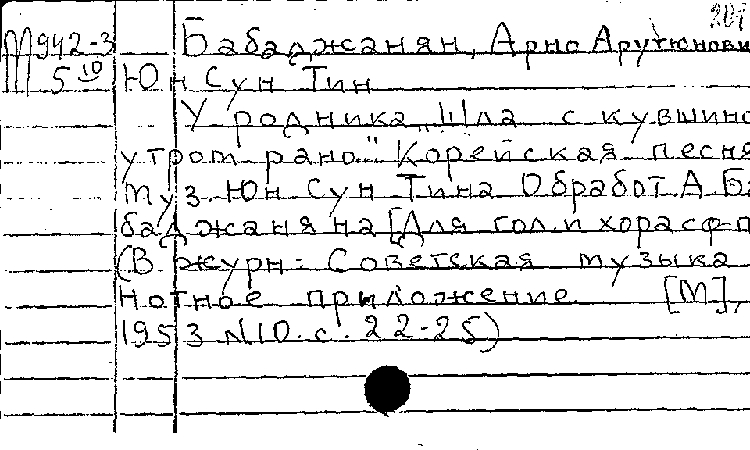 201
М942-3 Бабаджанян, Арно Арутюнови
5 10 Юн Сун Тин
У родника. „Шла с кувшино
утром рано..." Корейская песня
Муз. Юн Сун Тина Обработ. А. Ба
баджаняна [Для гол. и хора с ф-п
(В журн: Советская музыка
Нотное приложение [М],
1953 №10. с. 22-25)